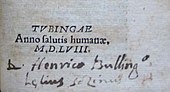 TVBINGAE
Anno salutis humanae,
M.D.LVIII.
Henrico Bulling